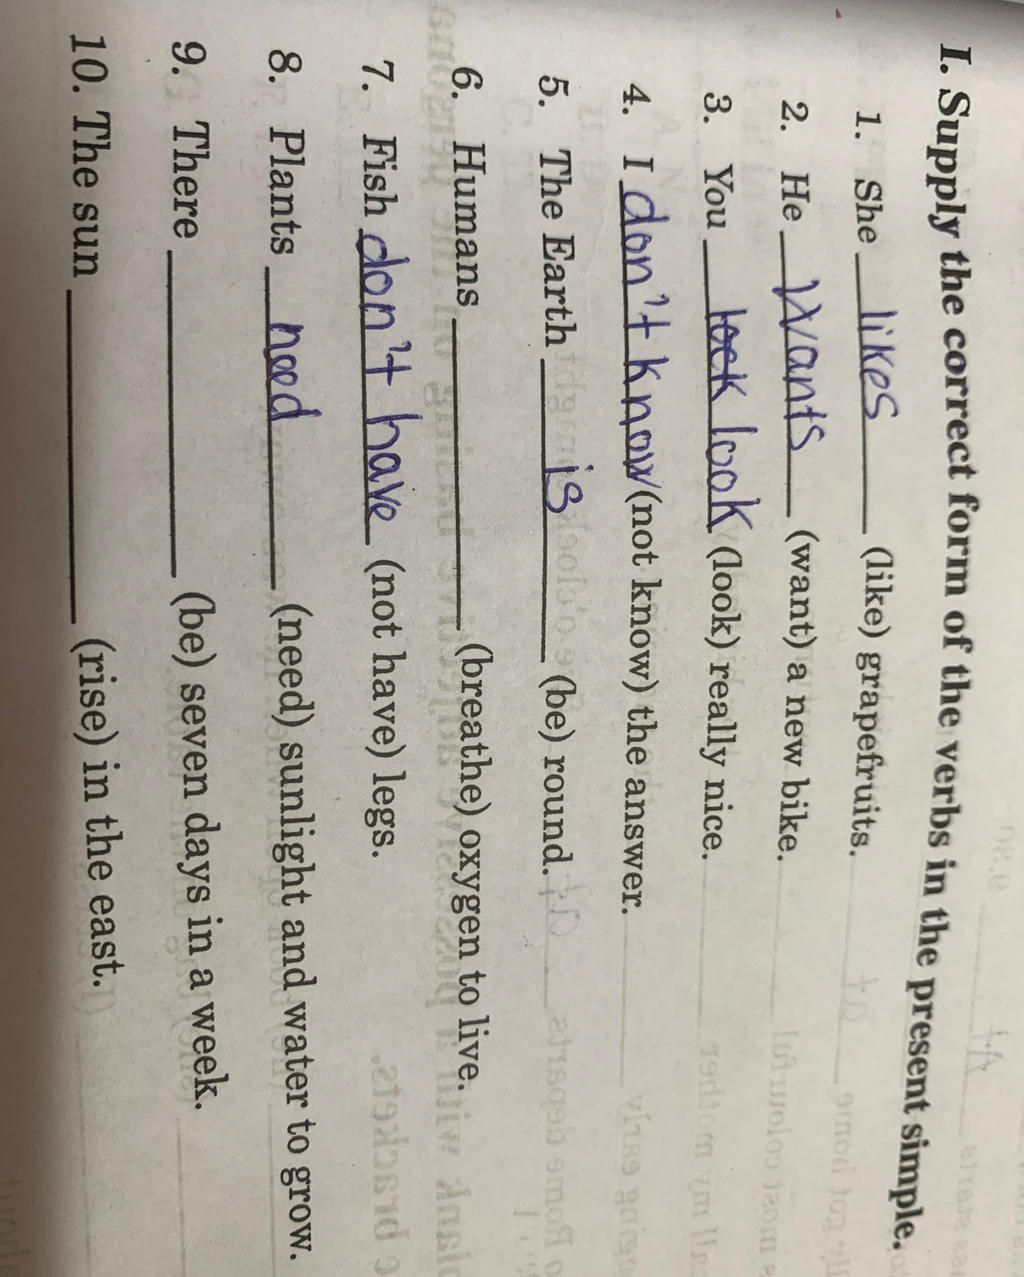 I. Supply the correct form of the verbs in the present simple.
1. She likes (like) grapefruits.
2. He wants (want) a new bike.
3. You look look (look) really nice.
4. I don't know (not know) the answer.
5. The Earth is (be) round.
6. Humans ______ (breathe) oxygen to live.
7. Fish don't have (not have) legs.
8. Plants need (need) sunlight and water to grow.
9. There ______ (be) seven days in a week.
10. The sun ______ (rise) in the east.